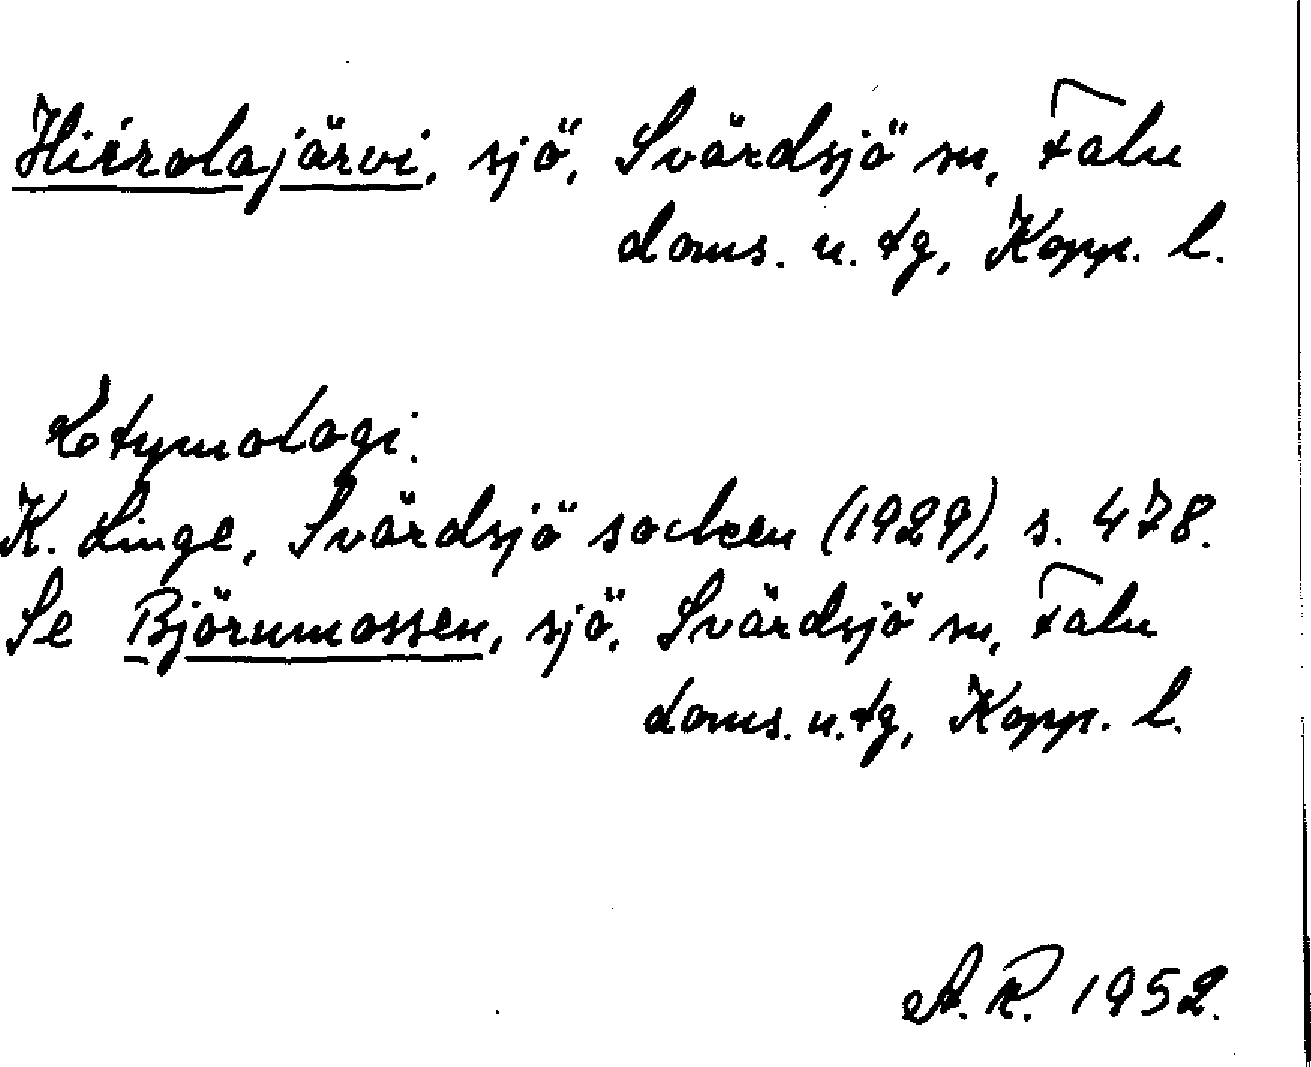 Hiirolajärvi, sjö, Svärdsjö sn, Falu
doms. u. tg, Kopp. l.
Etymologi.
K. Linge, Svärdsjö socken (1929), s. 478.
Se Björnmossen, sjö, Svärdsjö sn, Falu
doms. u. tg, Kopp. l.
A. R. 1952.